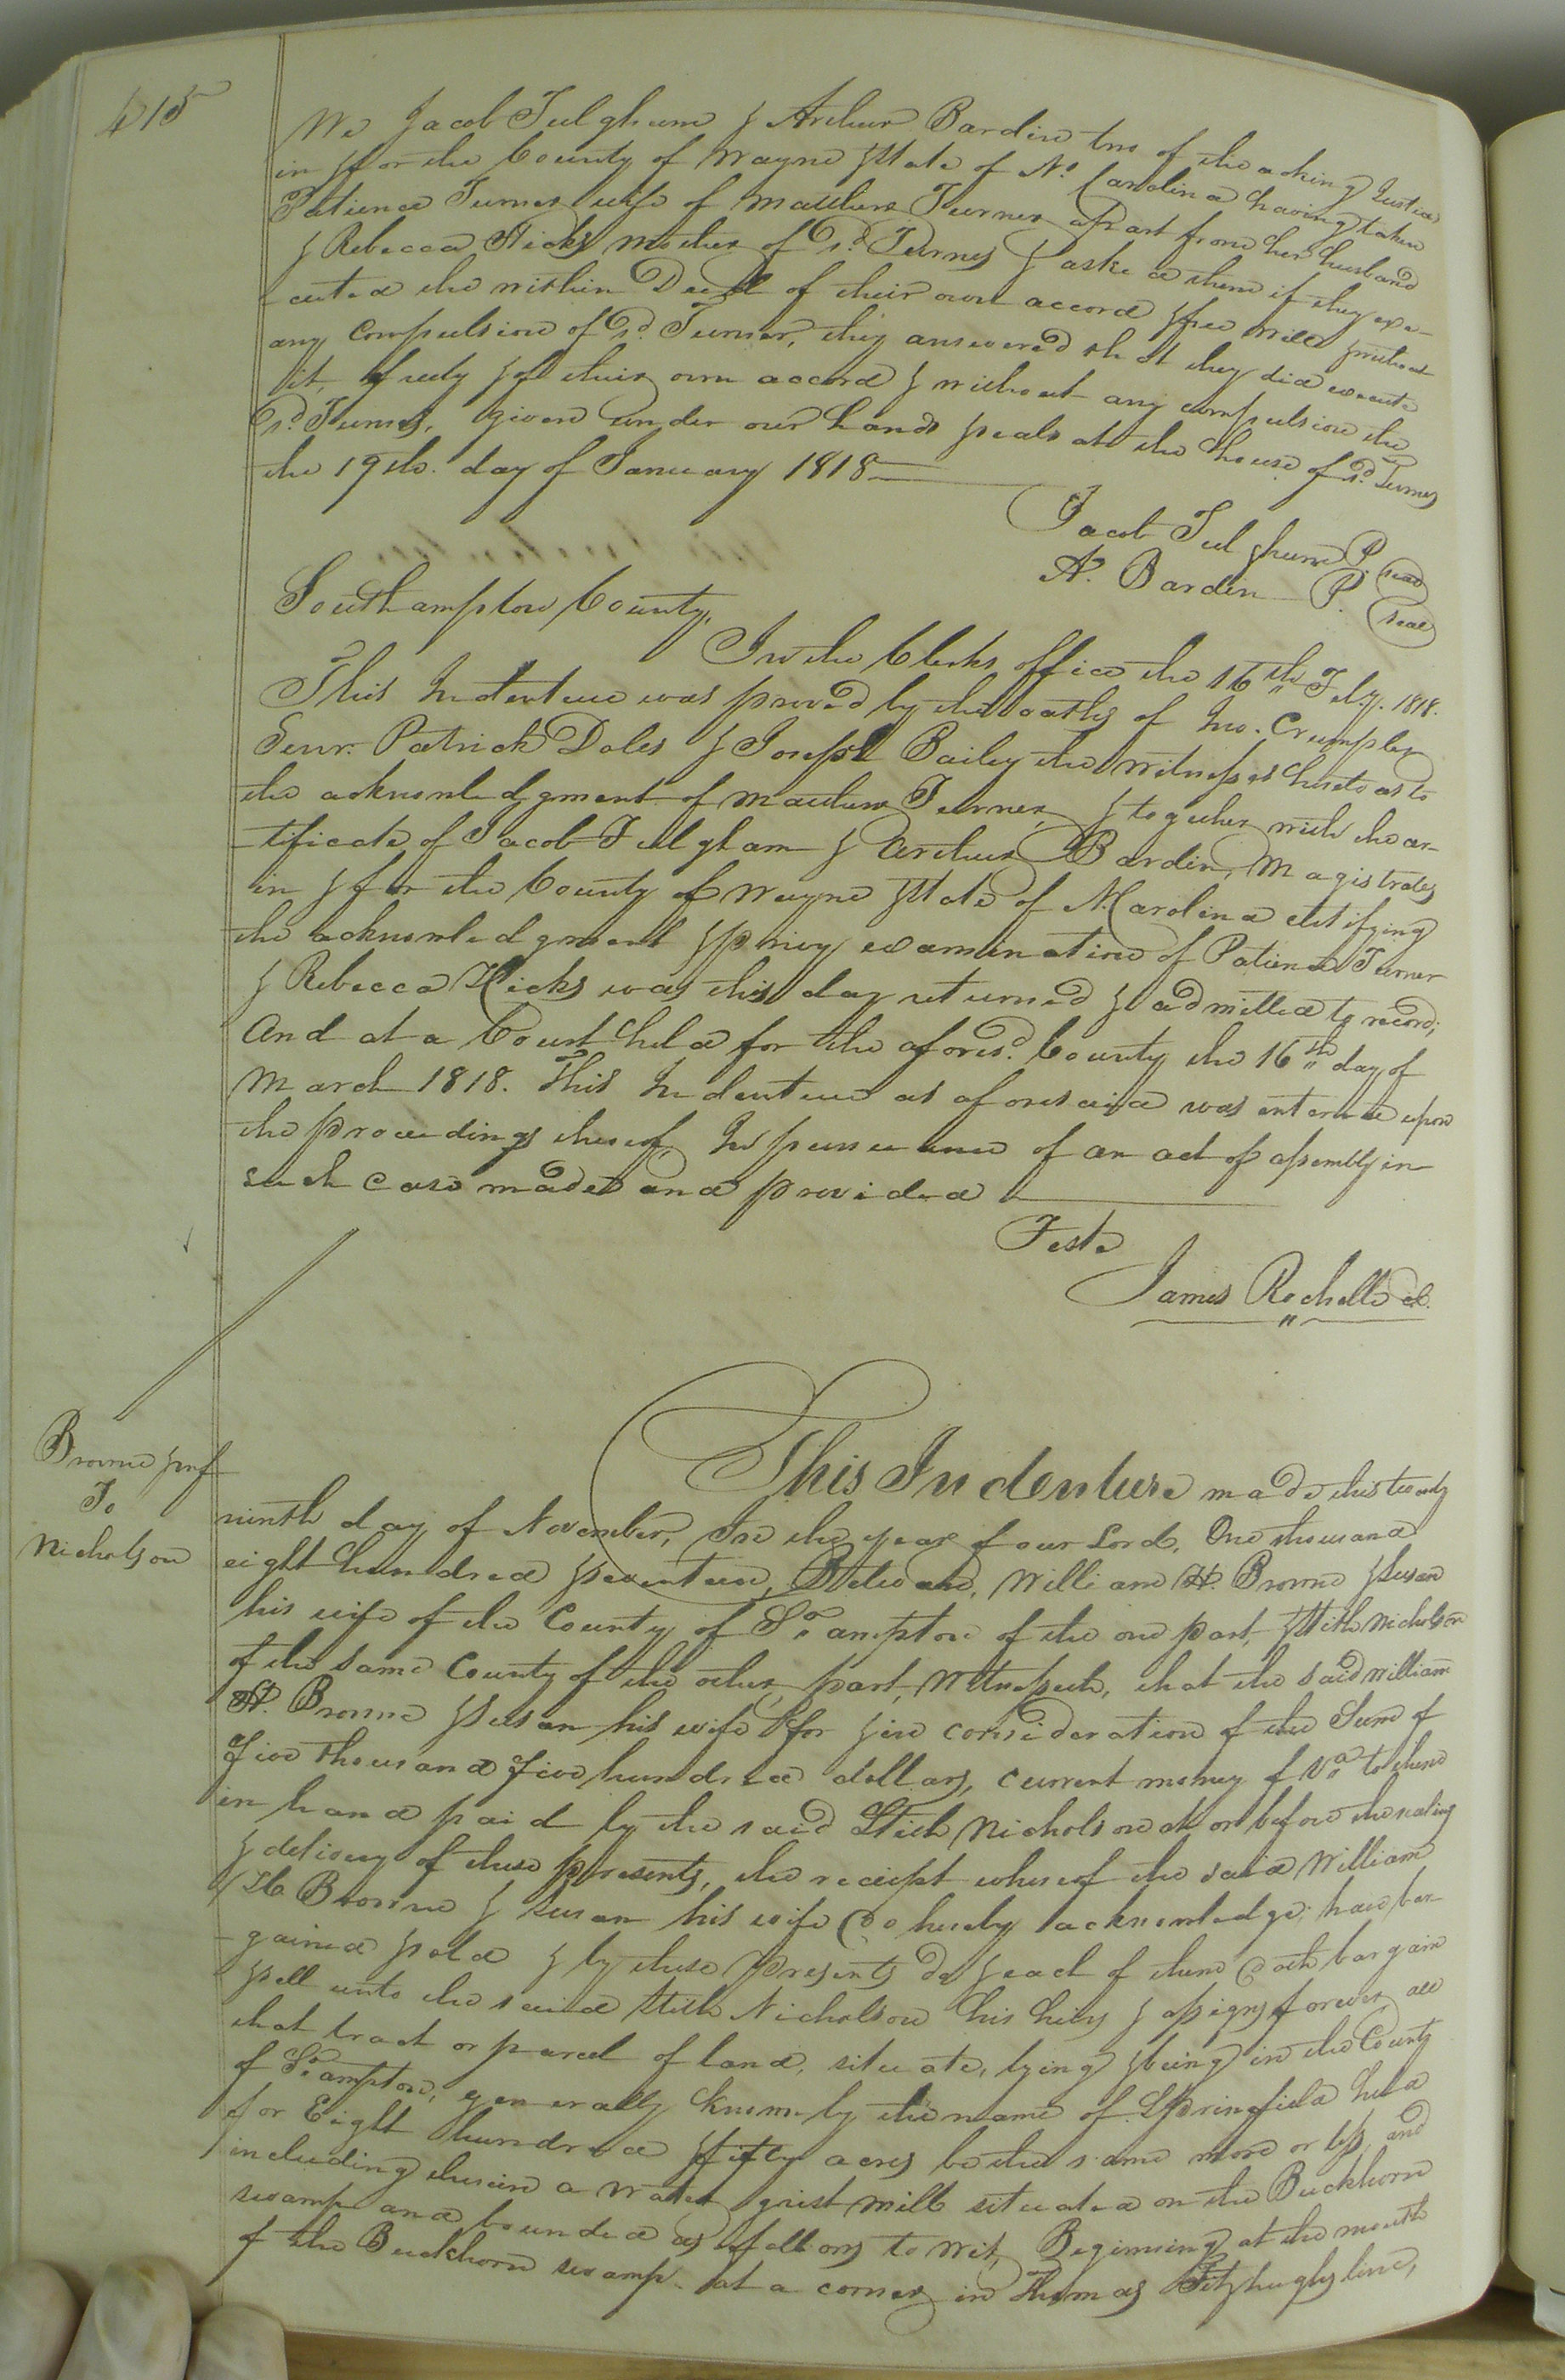 415
We Jacob Fulghum & Arthur Bardin two of the acting Justices
in & for the County of Wayne & State of No. Carolina having taken
Patience Turner wife of Matthew Turner apart from her husband
& Rebecca Hicks mother of sd. Turner & asked them if they exe-
cuted the within Deed of their own accord & free will & without
any compulsion of sd. Turner, they answered that they did execute
it freely & of their own accord & without any compulsion the
sd. Turner. Given under our hands & seals at the house of sd. Turner
the 19th. day of January 1818
Jacob Fulghum J.P. seal
A. Bardin J.P. seal
Southampton County,
In the Clerks office the 16th Feby. 1818.
This Indenture was proved by the oaths of Jno. Crumpler
Senr. Patrick Doles & Joseph Bailey the witnesses hereto as to
the acknowledgment of Matthew Turner, & together with the cer-
tificate of Jacob Fulgham & Arthur Bardin, Magistrates
in & for the County of Wayne & State of N. Carolina certifying
the acknowledgment & privy examination of Patience Turner
& Rebecca Hicks was this day returned & admitted to record;
And at a Court held for the aforesd. County the 16th day of
March 1818. This Indenture as aforesaid was entered upon
the proceedings thereof, In pursuance of an act of assembly in
such case made and provided
Teste
James Rochelle cl.
Browne & wf
To
Nicholson
This Indenture made this twenty
ninth day of November, In the year of our Lord, One thousand
eight hundred & seventeen, Between, William H. Browne & Susan
his wife of the County of So.ampton of the one part, & Stith Nicholson
of the same County of the other part, Witnesseth, that the said William
H. Browne & Susan his wife for & in consideration of the Sum of
Five thousand Five hundred dollars, current money of Va to them
in hand paid by the said Stith Nicholson at or before the sealing
& delivery of these presents, the receipt whereof the said William
H. Browne & Susan his wife do hereby acknowledge; have bar-
gained & sold & by these presents do & each of them doth bargain
& sell unto the said Stith Nicholson his heirs & assigns forever all
that tract or parcel of land, situate, lying & being in the County
of So.ampton, generally known by the name of Springfield held
for Eight hundred & fifty acres be the same more or less, and
including therein a water grist mill situated on the Buckhorn
swamp and bounded as follows to wit, Beginning at the mouth
of the Buckhorn swamp at a corner in Thomas Fitzhughs line,